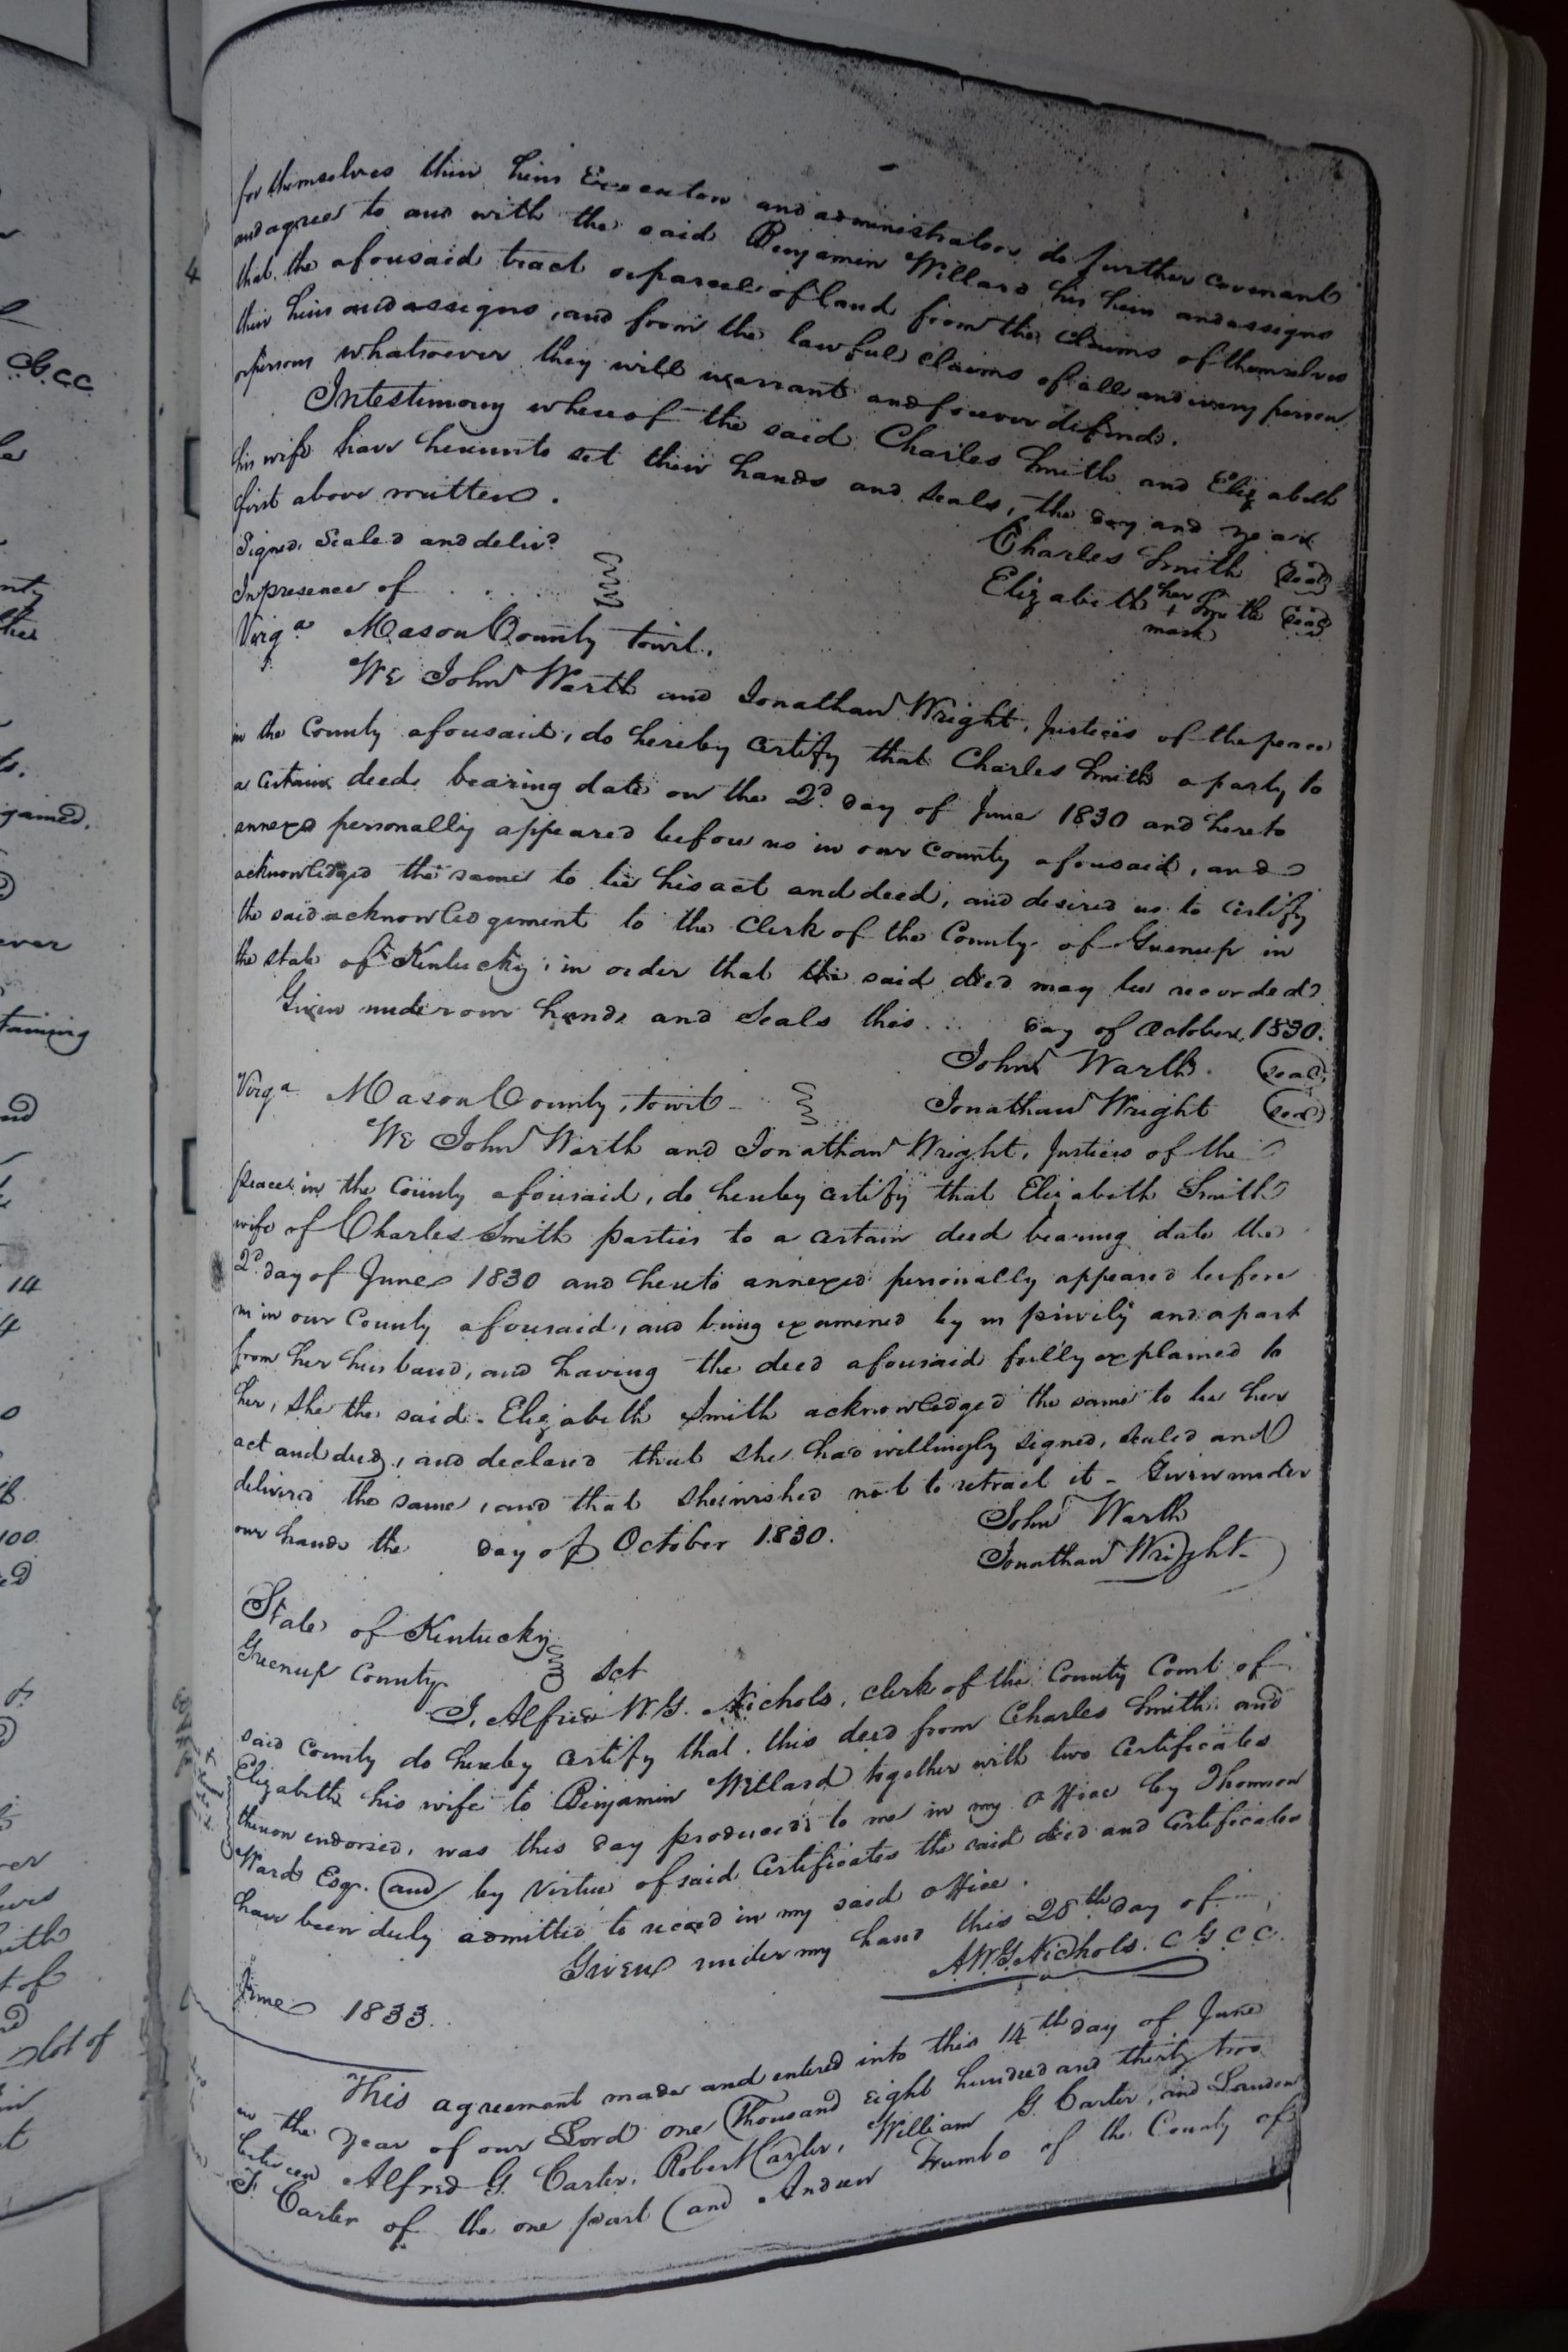 for themselves their heirs Executors and administrators do further covenant
and agree to and with the said Benjamin Willard his heirs and assigns
that the aforesaid tract or parcel of land from the claims of themselves
their heirs and assigns, and from the lawful claims of all and every person
or persons whatsoever they will warrant and forever defend.
In testimony whereof the said Charles Smith and Elizabeth
his wife have hereunto set their hands and seals, the day and year
first above written.
Signed, Sealed and deliv^d
In presence of
Charles Smith (Seal)
Elizabeth her + mark Smith (Seal)
Virg^a Mason County towit.
We John Warth and Jonathan Wright, Justices of the peace
in the County aforesaid, do hereby certify that Charles Smith a party to
a certain deed bearing date on the 2^d day of June 1830 and hereto
annexed personally appeared before us in our County aforesaid, and
acknowledged the same to be his act and deed, and desired us to certify
the said acknowledgement to the Clerk of the County of Greenup in
the state of Kentucky, in order that the said deed may be recorded.
Given under our hands and Seals this ... day of October, 1830.
John Warth. (Seal)
Virg^a Mason County, towit- Jonathan Wright (Seal)
We John Warth and Jonathan Wright, Justices of the
peace in the County aforesaid, do hereby certify that Elizabeth Smith
wife of Charles Smith parties to a certain deed bearing date the
2^d day of June 1830 and hereto annexed personally appeared before
us in our County aforesaid, and being examined by us privily and apart
from her husband, and having the deed aforesaid fully explained to
her, she the said - Elizabeth Smith acknowledged the same to be her
act and deed, and declared that she had willingly signed, sealed and
delivered the same, and that she wished not to retract it - Given under
our hands the day of October 1830.
John Warth
Jonathan Wright-
State of Kentucky
Greenup County Sct
I, Alfred W.G. Nichols, clerk of the County Court of
said County do hereby certify that this deed from Charles Smith and
Elizabeth his wife to Benjamin Willard together with two Certificates
thereon endorsed, was this day produced to me in my office by Thomson
Ward Esqr. (and by virtue of said Certificates the said deed and Certificates
have been duly admitted to record in my said office.
Given under my hand this 28^th day of
June 1833.
A.W.G. Nichols. C G C C.
This agreement made and entered into this 14^th day of June
in the Year of our Lord one Thousand eight hundred and thirty two
between Alfred G. Carter, Robert Carter, William G. Carter, and Landon
T. Carter of the one part (and Andrew Trumbo of the County of